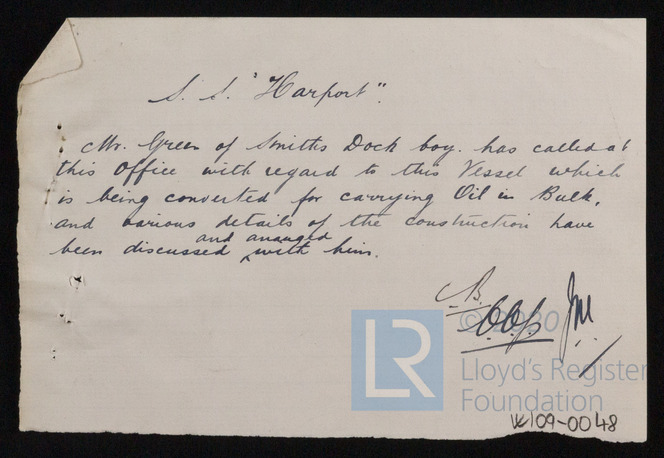 S. S. "Harport".
Mr. Green of Smiths Dock Coy. has called at
this Office with regard to this Vessel which
is being converted for carrying Oil in Bulk,
and various details of the construction have
and arranged
been discussed ^ with him.
B.
JM.
© 2020
LR
Lloyd's Register
Foundation
W109-0048